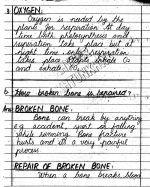 OXYGEN:
Oxygen is needed by the
plants for respiration. At day
time both photosynthesis and
respiration take place but at
night time only respiration
takes place. Plants inhale O2
and exhale
How broken bone is repaired?
Ans: BROKEN BONE:
Bone can break by anything
e.g accident, sport or falling
while running. Bone fracture
hurts and its a very painful
process
REPAIR OF BROKEN BONE:
When a bone breaks blood